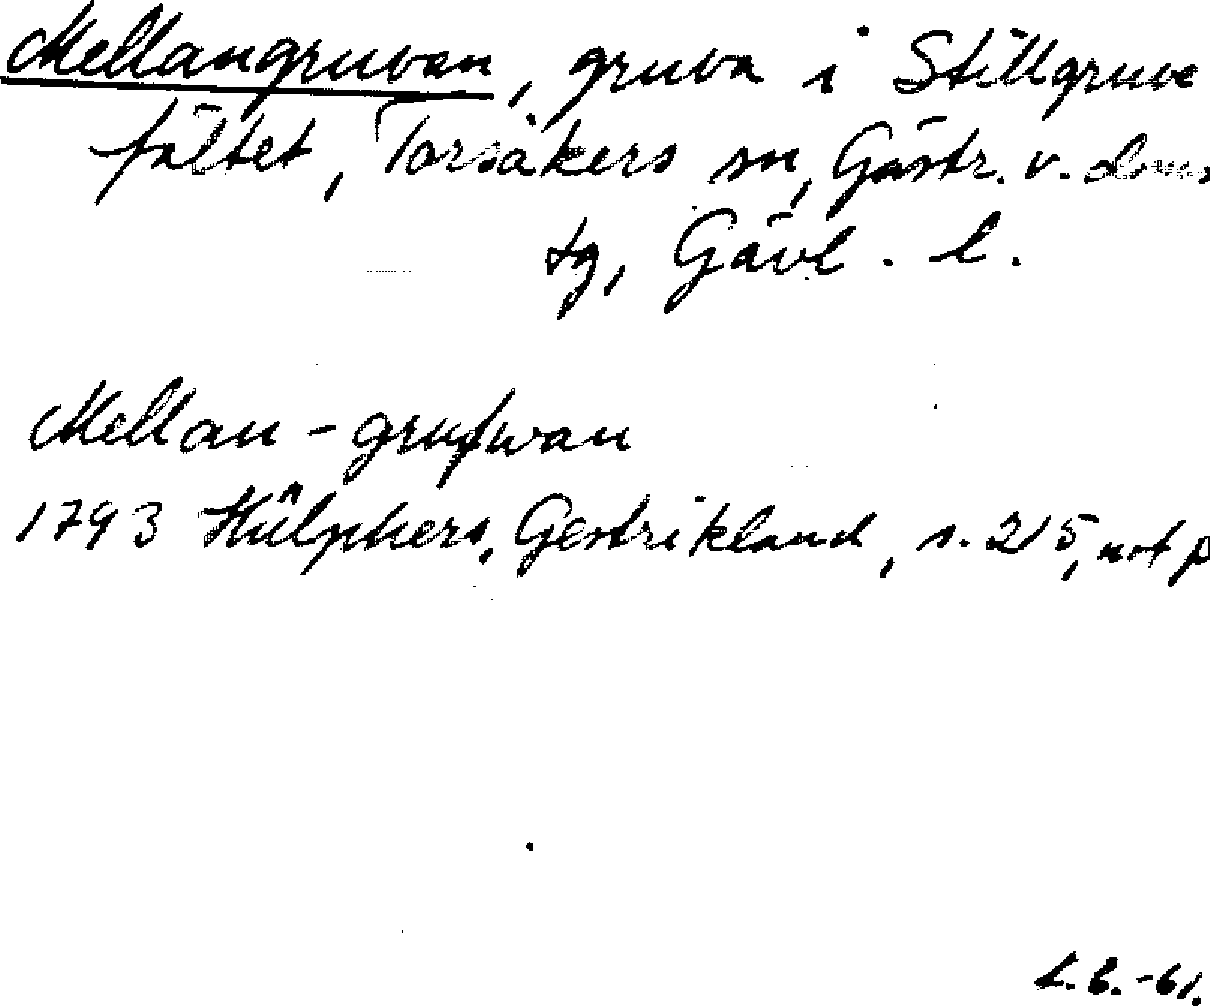 Mellangruvan, gruva i Stillgruve
fältet, Torsåkers sn, Gästr. v. doms
tg, Gävl. l.
Mellan-grufwan
1793 Hülphers, Gestrikland, s. 215, not p
L.B.-61.